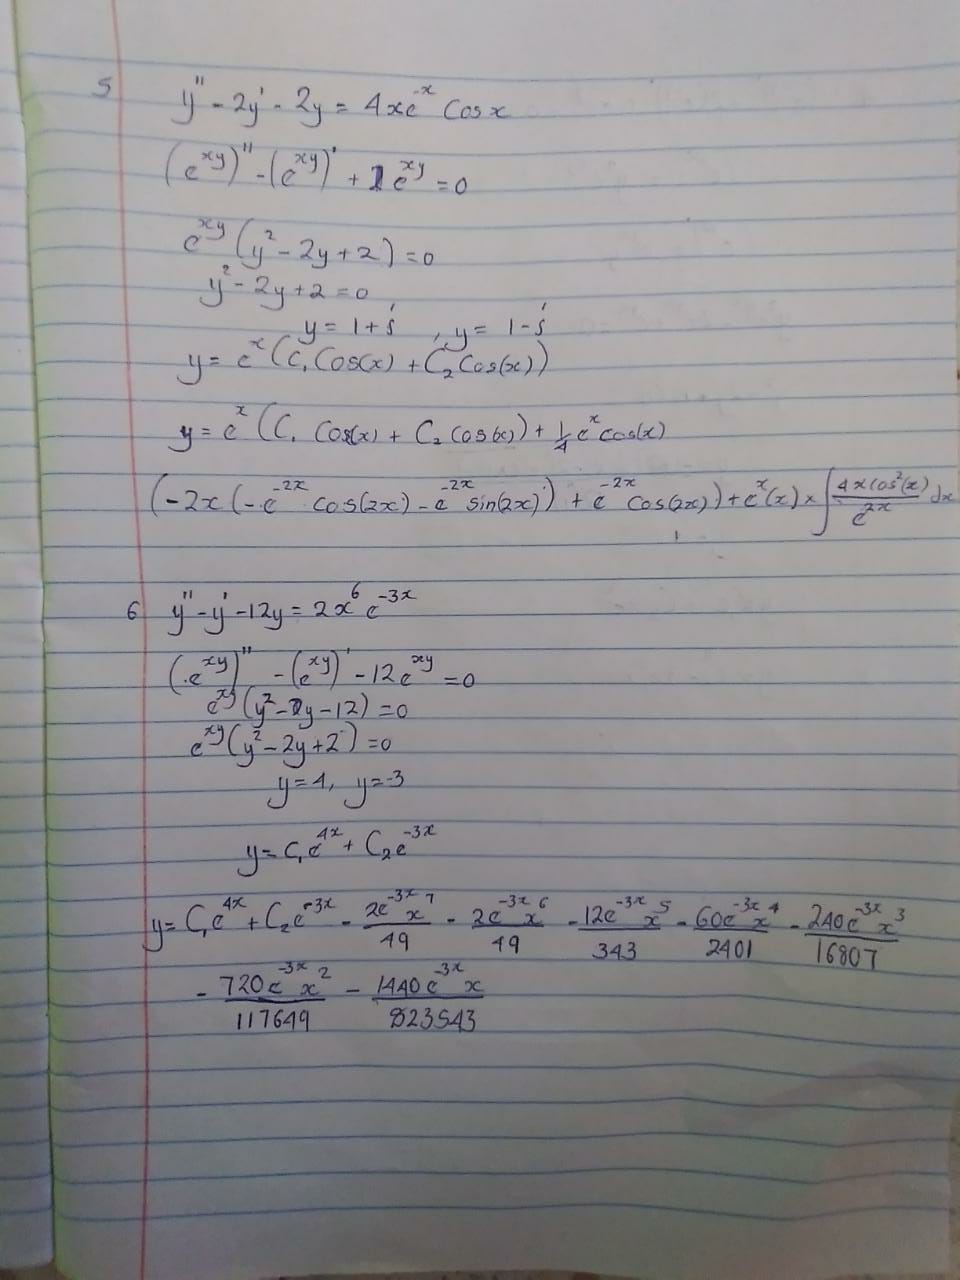 5 y'' - 2y' - 2y = 4xe^{-x} Cos x
(e^{xy})'' - (e^{xy})' + 2e^{xy} = 0
e^{xy} (y^2 - 2y + 2) = 0
y^2 - 2y + 2 = 0
y = 1 + i , y = 1 - i
y = e^x (C_1 Cos(x) + C_2 Cos(x))
y = e^x (C_1 Cos(x) + C_2 Cos(x)) + \frac{1}{4} e^x cos(x)
(-2x (-e^{-2x} cos(2x) - e^{-2x} sin(2x)) + e^{-2x} cos(2x)) + e^x (x) × ∫ \frac{4x cos^2(x)}{e^{2x}} dx
6 y'' - y' - 12y = 2x^6 e^{-3x}
(e^{xy})'' - (e^{xy})' - 12e^{xy} = 0
e^{xy} (y^2 - y - 12) = 0
e^{xy} (y^2 - 2y + 2) = 0
y = 4, y = -3
y = C_1 e^{4x} + C_2 e^{-3x}
y = C_1 e^{4x} + C_2 e^{-3x} - \frac{2e^{-3x} x^7}{49} - \frac{2e^{-3x} x^6}{49} - \frac{12e^{-3x} x^5}{343} - \frac{60e^{-3x} x^4}{2401} - \frac{240e^{-3x} x^3}{16807}
- \frac{720e^{-3x} x^2}{117649} - \frac{1440e^{-3x} x}{823543}